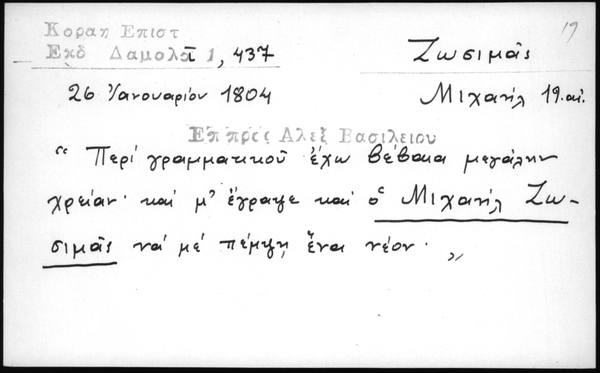 Κοραη Επιστ
Εκδ Δαμαλᾶ 1, 437
Ζωσιμᾶς
19
26 Ἰανουαρίου 1804
Μιχαήλ 19. αἰ.
Επ προς Αλεξ Βασιλειου
“ Περί γραμματικοῦ ἔχω βέβαια μεγάλην
χρείαν· καί μ' ἔγραψε καί ὁ Μιχαήλ Ζω-
σιμᾶς νά μέ πέμψῃ ἕνα νέον· „